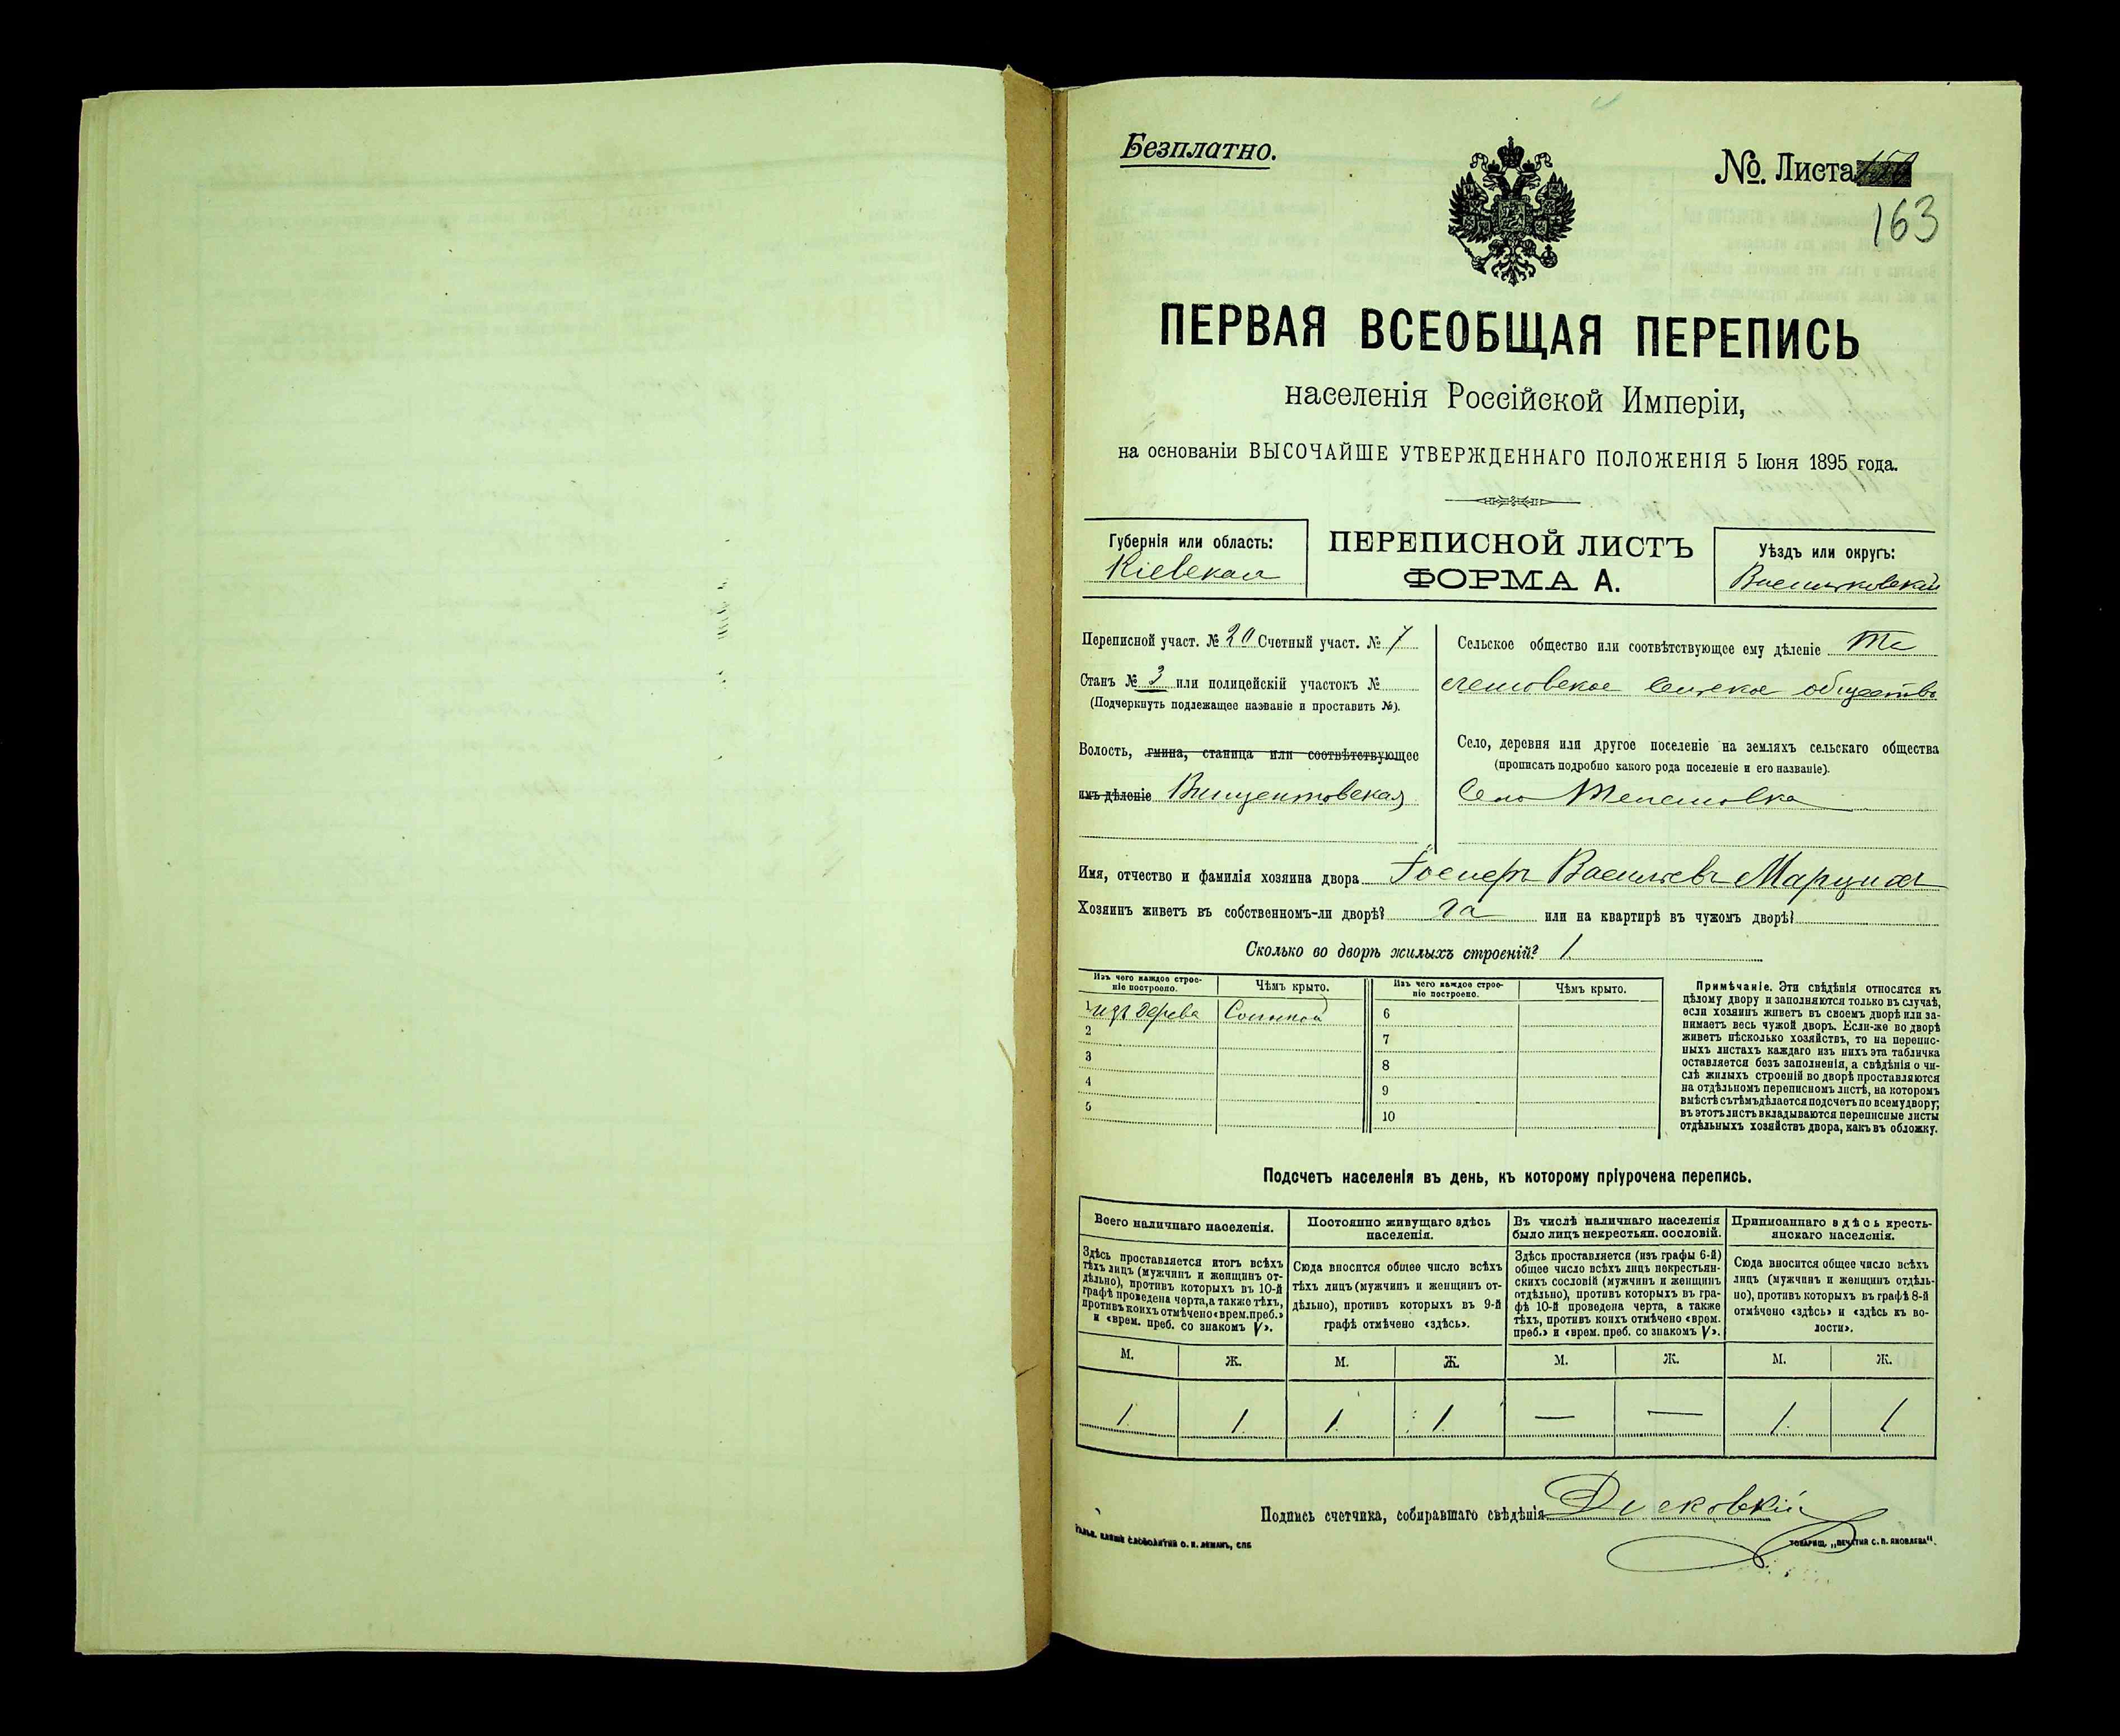 Безплатно.
№. Листа
163
ПЕРВАЯ ВСЕОБЩАЯ ПЕРЕПИСЬ
населенія Россійской Имперіи,
на основаніи ВЫСОЧАЙШЕ УТВЕРЖДЕННАГО ПОЛОЖЕНІЯ 5 Іюня 1895 года.
Губернія или область:
Кіевская
ПЕРЕПИСНОЙ ЛИСТЪ
ФОРМА А.
Уѣздъ или округъ:
Васильковскій
Переписной участ. № 20 Счетный участ. № 7
Станъ № 3 или полицейскій участокъ №
(Подчеркнуть подлежащее названіе и проставить №).
Волость, гмина, станица или соотвѣтствующее
имъ дѣленіе Винцентовская
Сельское общество или соотвѣтствующее ему дѣленіе
сельское общество
Село, деревня или другое поселеніе на земляхъ сельскаго общества
(прописать подробно какого рода поселеніе и его названіе).
Село
Имя, отчество и фамилія хозяина двора Васильевъ
Хозяинъ живетъ въ собственномъ-ли дворѣ? да или на квартирѣ въ чужомъ дворѣ?
Сколько во дворѣ жилыхъ строеній? 1.
Изъ чего каждое строе-
ніе построено.
Чѣмъ крыто.
Изъ чего каждое строе-
ніе построено.
Чѣмъ крыто.
1 изъ дерева Соломой 6
2 7
3 8
4 9
5 10
Примѣчаніе. Эти свѣдѣнія относятся къ
цѣлому двору и заполняются только въ случаѣ,
если хозяинъ живетъ въ своемъ дворѣ или за-
нимаетъ весь чужой дворъ. Если-же во дворѣ
живетъ нѣсколько хозяйствъ, то на перепис-
ныхъ листахъ каждаго изъ нихъ эта табличка
оставляется безъ заполненія, а свѣдѣнія о чи-
слѣ жилыхъ строеній во дворѣ проставляются
на отдѣльномъ переписномъ листѣ, на которомъ
вмѣстѣ съ тѣмъ дѣлается подсчетъ по всему двору;
въ этотъ листъ вкладываются переписные листы
отдѣльныхъ хозяйствъ двора, какъ въ обложку.
Подсчетъ населенія въ день, къ которому пріурочена перепись.
Всего наличнаго населенія.
Здѣсь проставляется итогъ всѣхъ
тѣхъ лицъ (мужчинъ и женщинъ от-
дѣльно), противъ которыхъ въ 10-й
графѣ проведена черта, а также тѣхъ,
противъ коихъ отмѣчено «врем. преб.»
и «врем. преб. со знакомъ V».
Постоянно живущаго здѣсь
населенія.
Сюда вносится общее число всѣхъ
тѣхъ лицъ (мужчинъ и женщинъ от-
дѣльно), противъ которыхъ въ 9-й
графѣ отмѣчено «здѣсь».
Въ числѣ наличнаго населенія
было лицъ некрестьян. сословій.
Здѣсь проставляется (изъ графы 6-й)
общее число всѣхъ лицъ некрестьян-
скихъ сословій (мужчинъ и женщинъ
отдѣльно), противъ которыхъ въ гра-
фѣ 10-й проведена черта, а также
тѣхъ, противъ коихъ отмѣчено «врем.
преб.» и «врем. преб. со знакомъ V».
Приписаннаго здѣсь кресть-
янскаго населенія.
Сюда вносится общее число всѣхъ
лицъ (мужчинъ и женщинъ отдѣль-
но), противъ которыхъ въ графѣ 8-й
отмѣчено «здѣсь» и «здѣсь къ во-
лости».
М. Ж. М. Ж. М. Ж. М. Ж.
1. 1. 1. 1. — — 1. 1
Подпись счетчика, собиравшаго свѣдѣнія
СЛОВОЛИТНИ О. И. ЛЕМАНЪ, СПБ
ТОВАРИЩ. „ПЕЧАТНЯ С. П. ЯКОВЛЕВА“.